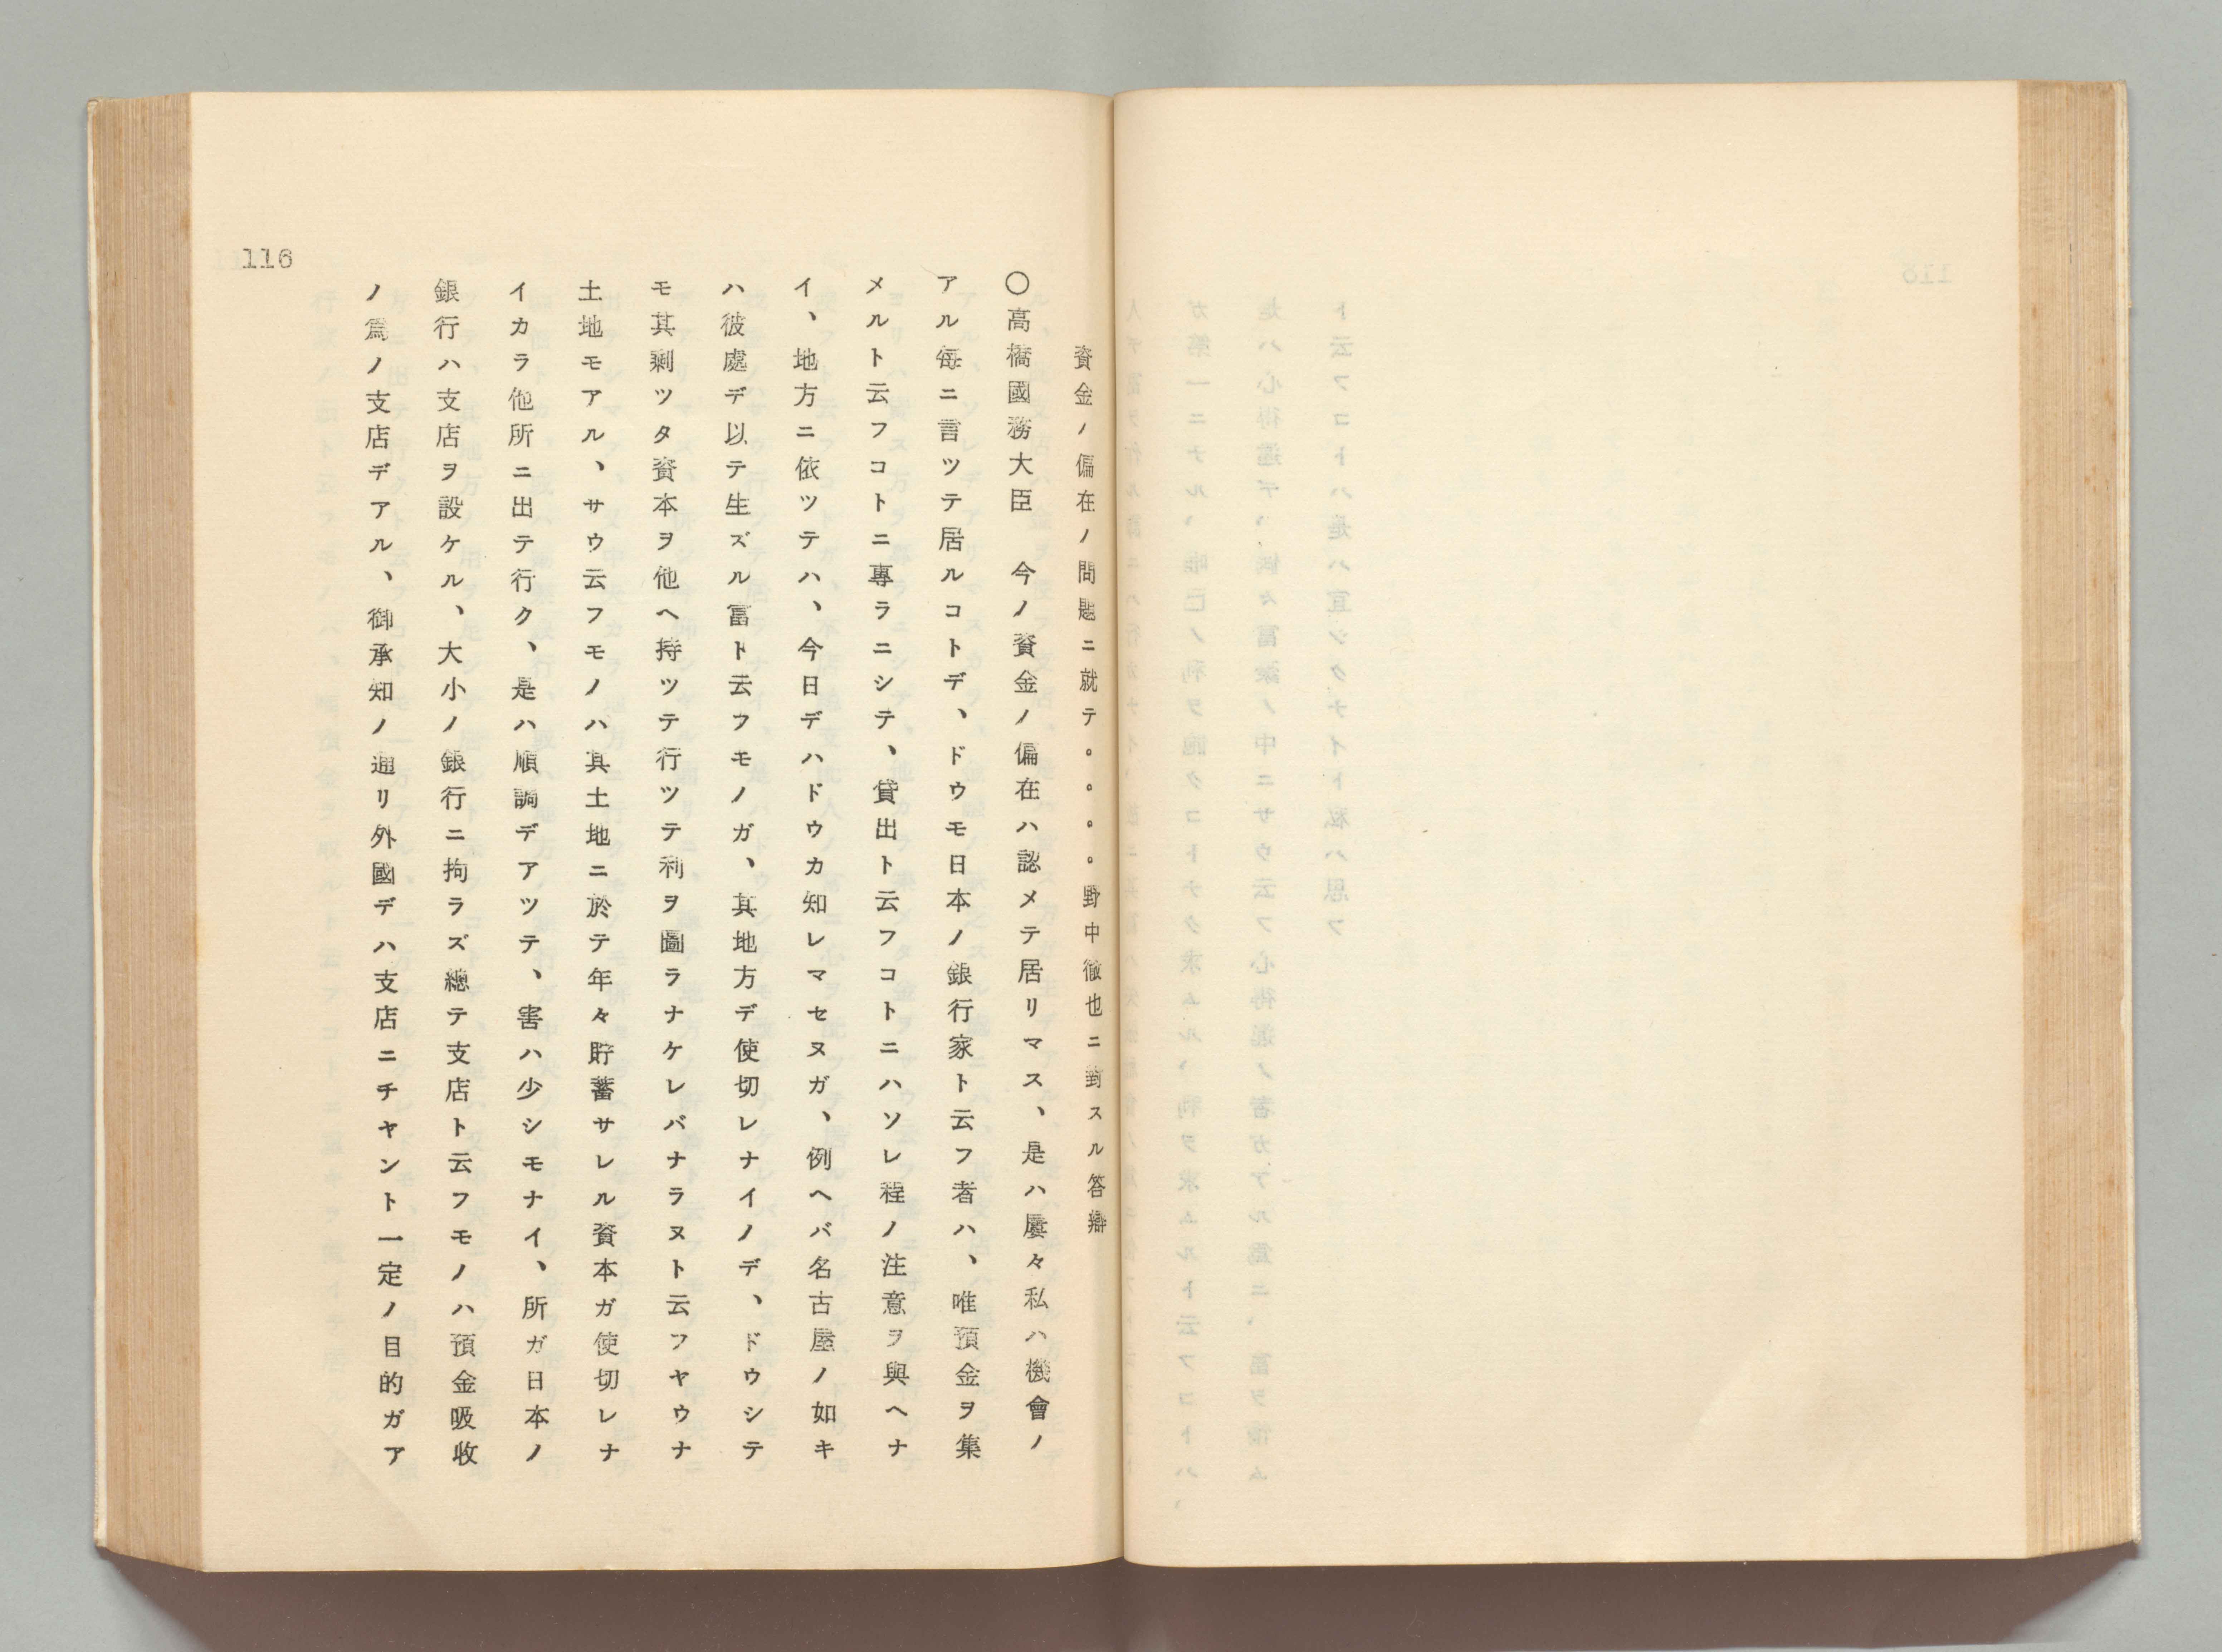 資金ノ偏在ノ問題ニ就テ。。。。野中徹也ニ對スル答辯
〇高橋國務大臣　今ノ資金ノ偏在ハ認メテ居リマス、是ハ屢々私ハ機會ノ
アル每ニ言ツテ居ルコトデ、ドウモ日本ノ銀行家ト云フ者ハ、唯預金ヲ集
メルト云フコトニ專ラニシテ、貸出ト云フコトニハソレ程ノ注意ヲ與ヘナ
イ、地方ニ依ツテハ、今日デハドウカ知レマセヌガ、例ヘバ名古屋ノ如キ
ハ彼處デ以テ生ズル富ト云フモノガ、其地方デ使切レナイノデ、ドウシテ
モ其剩ツタ資本ヲ他ヘ持ツテ行ツテ利ヲ圖ラナケレバナラヌト云フヤウナ
土地モアル、サウ云フモノハ其土地ニ於テ年々貯蓄サレル資本ガ使切レナ
イカラ他所ニ出テ行ク、是ハ順調デアツテ、害ハ少シモナイ、所ガ日本ノ
銀行ハ支店ヲ設ケル、大小ノ銀行ニ拘ラズ總テ支店ト云フモノハ預金吸收
ノ爲ノ支店デアル、御承知ノ通リ外國デハ支店ニチヤント一定ノ目的ガア
116